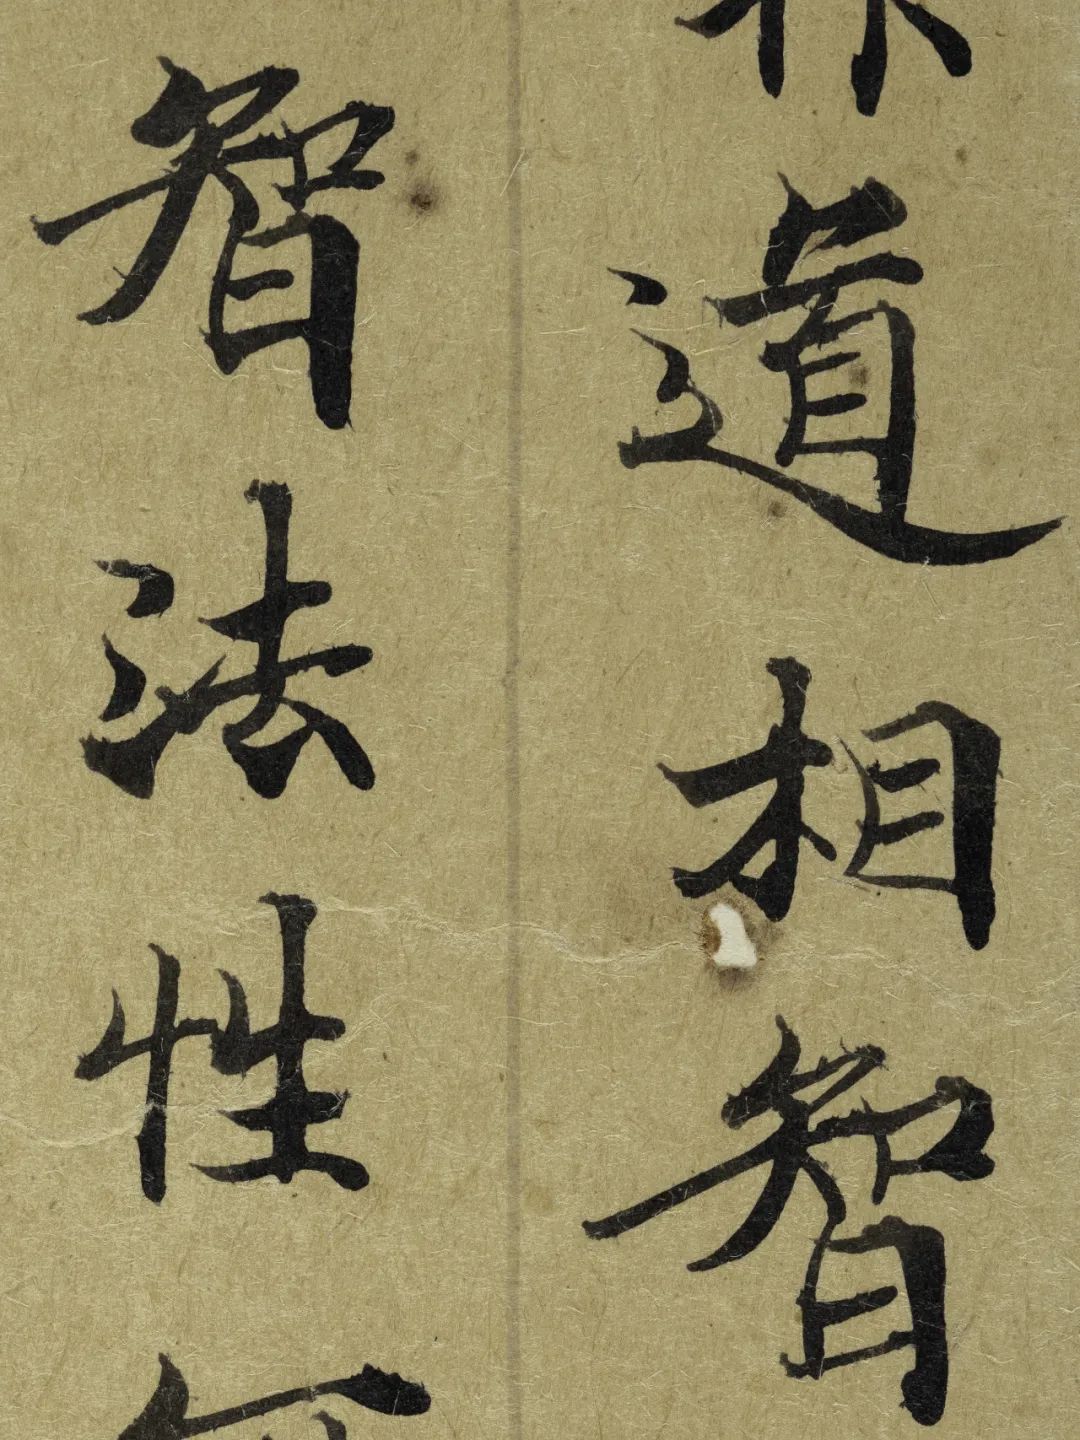 道相智
智法性